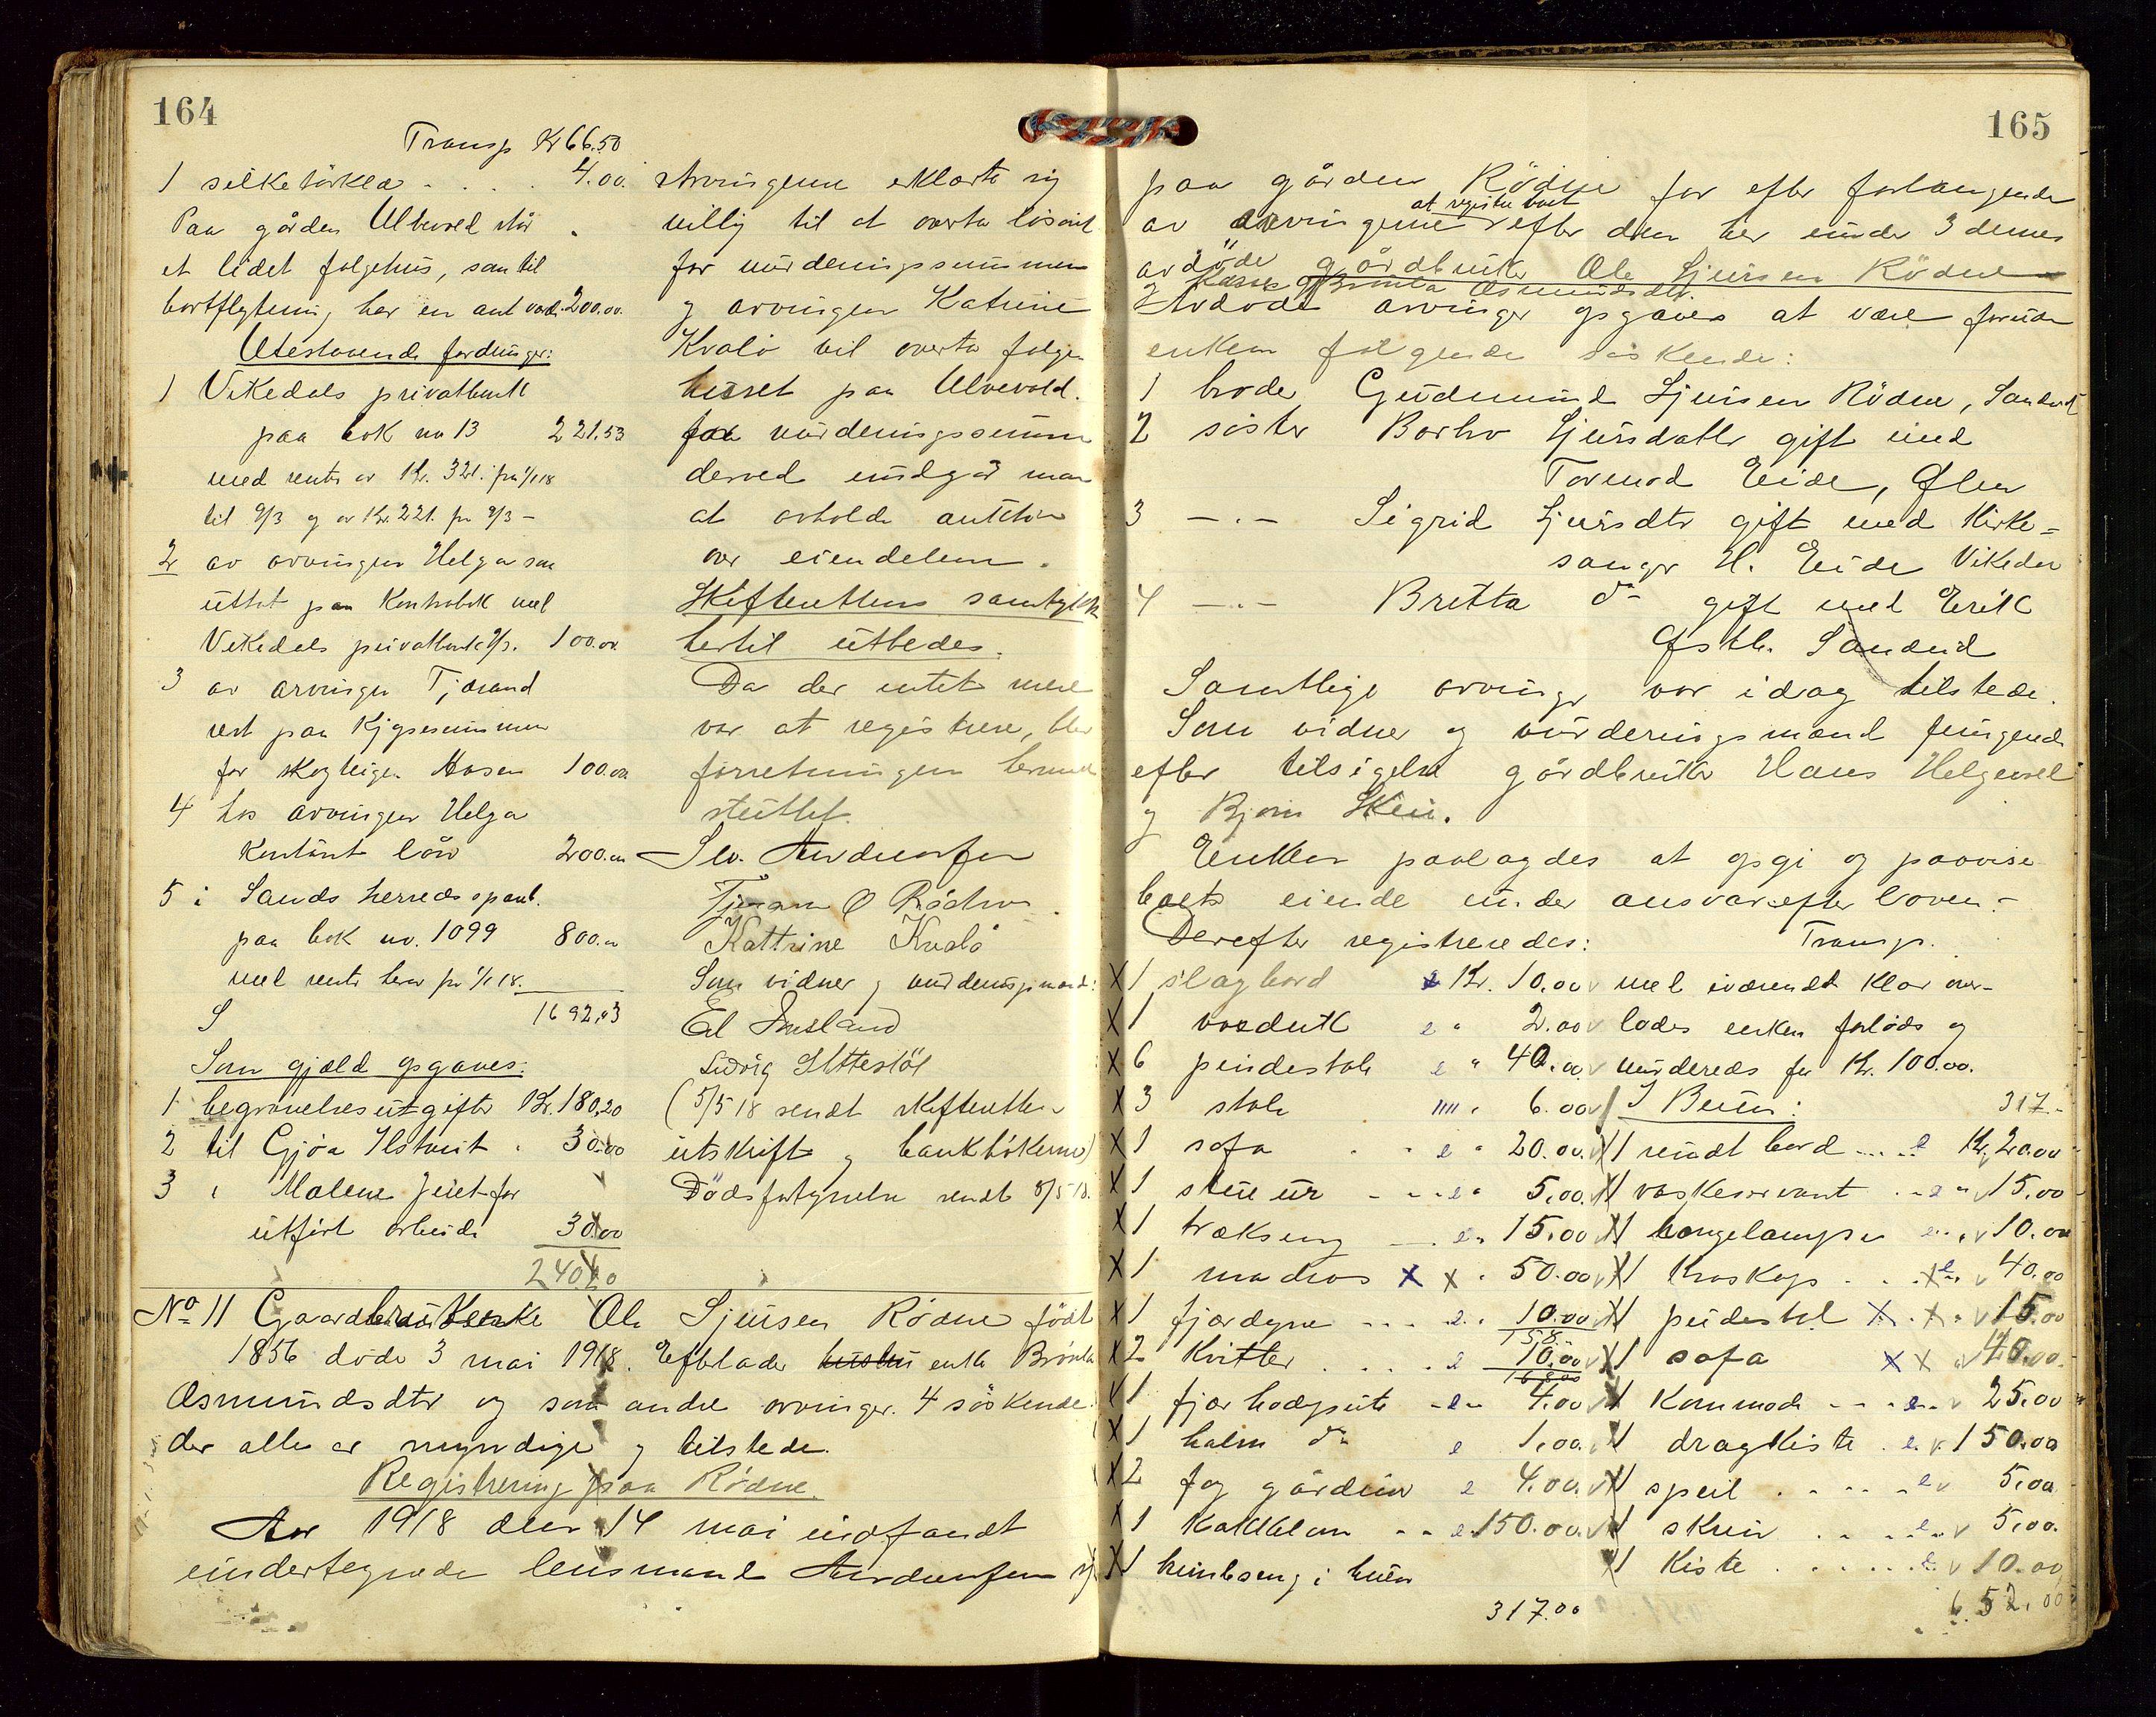 164
Transp Kr 66.50
1 silketørklæ . . . . 4.00.
Paa gården Ulvevold står
et lidet folgehus, som til
bortflytning har en ant værdi 200.00
Utestaaende fordringer:
1 Vikedals privatbank
paa bok no 13 221,53
med rente av Kr. 321. fra 1/1 18
til 9/3 og av Kr. 221. fra 9/3 -
2 av arvingen Helga som
uttat paa Kontrabok med
Vikedals privatbank 9/3. 100.00
3 av arvingen Tjærand
rest paa Kjøpesummen
for skogteigen Aasen 100.00
4 hos arvingen Helga
Kontant lån 200.00
5 i Sands herreds spareb.
paa bok no. 1099 800.00
med rente herav fra 1/1 18.
S 1692,03
Som gjæld opgaves:
1 begravelsesutgifter Kr. 180,20
2 til Gjøa Ilstveit " 30.00
3 " Malene for
utført arbeide 30.00
240.20
arvingerne erklærte sig
villig til at overta løsøret
for vurderingssummen
og arvingen Katrine
Kvalø vil overta følge-
huset paa Ulvevold.
for vurderingssummen
derved undgår man
at avholde auktion
over eiendelene.
Skifterettens samtykke
hertil utbedes.
Da der intet mere
var at registrere, blev
forretningen hermed
sluttet.
Tjæran O Rødne
Kattrine Kvalø
Som vidner og vurderingsmænd:
Ludvig
(5/5 18 sendt skifteretten
utskrift og bankbøkerne)
Dødsfaldsmelde sendt 8/5 18.
No 11 Gaardbruker Ole Sjursen Rødne født
1856 døde 3 mai 1918. Efterlader enke Brønla
Asmundsdtr og som andre arvinger 4 søskende
der alle er myndige og tilstede.
Registrering paa Rødne.
Aar 1918 den 14 mai indfandt
undertegnede lensmand sig
165
paa gården Rödne for efter forlangende
av arvingerne at registrere boet efter den her under 3 dennes
avdöde gårdbruker Ole Sjursen Rödne
Brønla Asmundsdtr.
Avdødes arvinger opgaves at være foruden
enken følgende søskende:
1 broder Gudmund Sjursen Rödne, Sandeid
2 søster Borhv Sjursdatter gift med
Tormod Eide, Ølen
3 -.- Sigrid Sjursdtr gift med Kirke-
sanger H. Eide Vikedal
4 -.- Britta do gift med Erik
Østb. Sandeid
Samtlige arvinger var idag tilstede.
Som vidner og vurderingsmænd fungerede
efter tilsigelse gårdbruker Hans Helgevold
og Bjørn Skeie.
Enken paalagdes at opgi og paavise
boets eiende under ansvar efter loven.-
Derefter registreredes: Transp.
X 1 slagbord Kr. 10.00
X 1 voxduk " 2.00
X 6 pindestole " 40.00
X 3 stole " 6.00
X 1 sofa " 20.00
X 1 stueur " 5.00
X 1 trækseng " 15.00
X 1 madras X X " 50.00
X 1 fjærdyne 10.00
158.-
X 2 Kvitler 10.00
168.00
X 1 fjær hodepute 4.00
X 1 halm do 1.00
X 2 fag gardiner 4.00
X 1 Kakkelovn 150.00
X 1 himlseng i buen
317.00
med iværende klær over-
lodes enken forlods og
vurderedes for Kr. 100.00.
I Buen: 317.-
X 1 rundt bord Kr. 20.00
X 1 vaskeservant 15.00
X 1 hængelampe 10.00
X 1 Kroskap 40.00
X 1 pindestol X X 15.00
X 1 sofa X X 40.00
X 1 Kommode 25.00
X 1 dragkiste 150.00
X 1 speil 5.00
X 1 skrin 5.00
X 1 Kiste 10.00
652.00